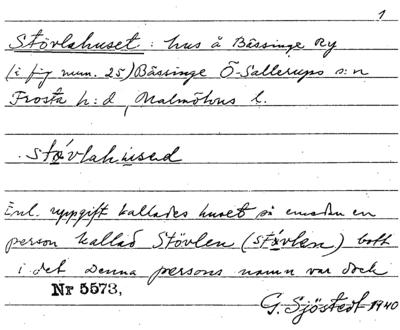 1
Stövlahuset: hus å Bässinge ry
(i jg num. 25) Bässinge Ö-Sallerups s:n
Frosta h:d, Malmöhus l.
stövlahused
Enl. uppgift kallades huset så emedan en
person kallad Stövlen (stövlen) bott
i det. Denna persons namn var dock
Nr 5573,
G. Sjöstedt 1940